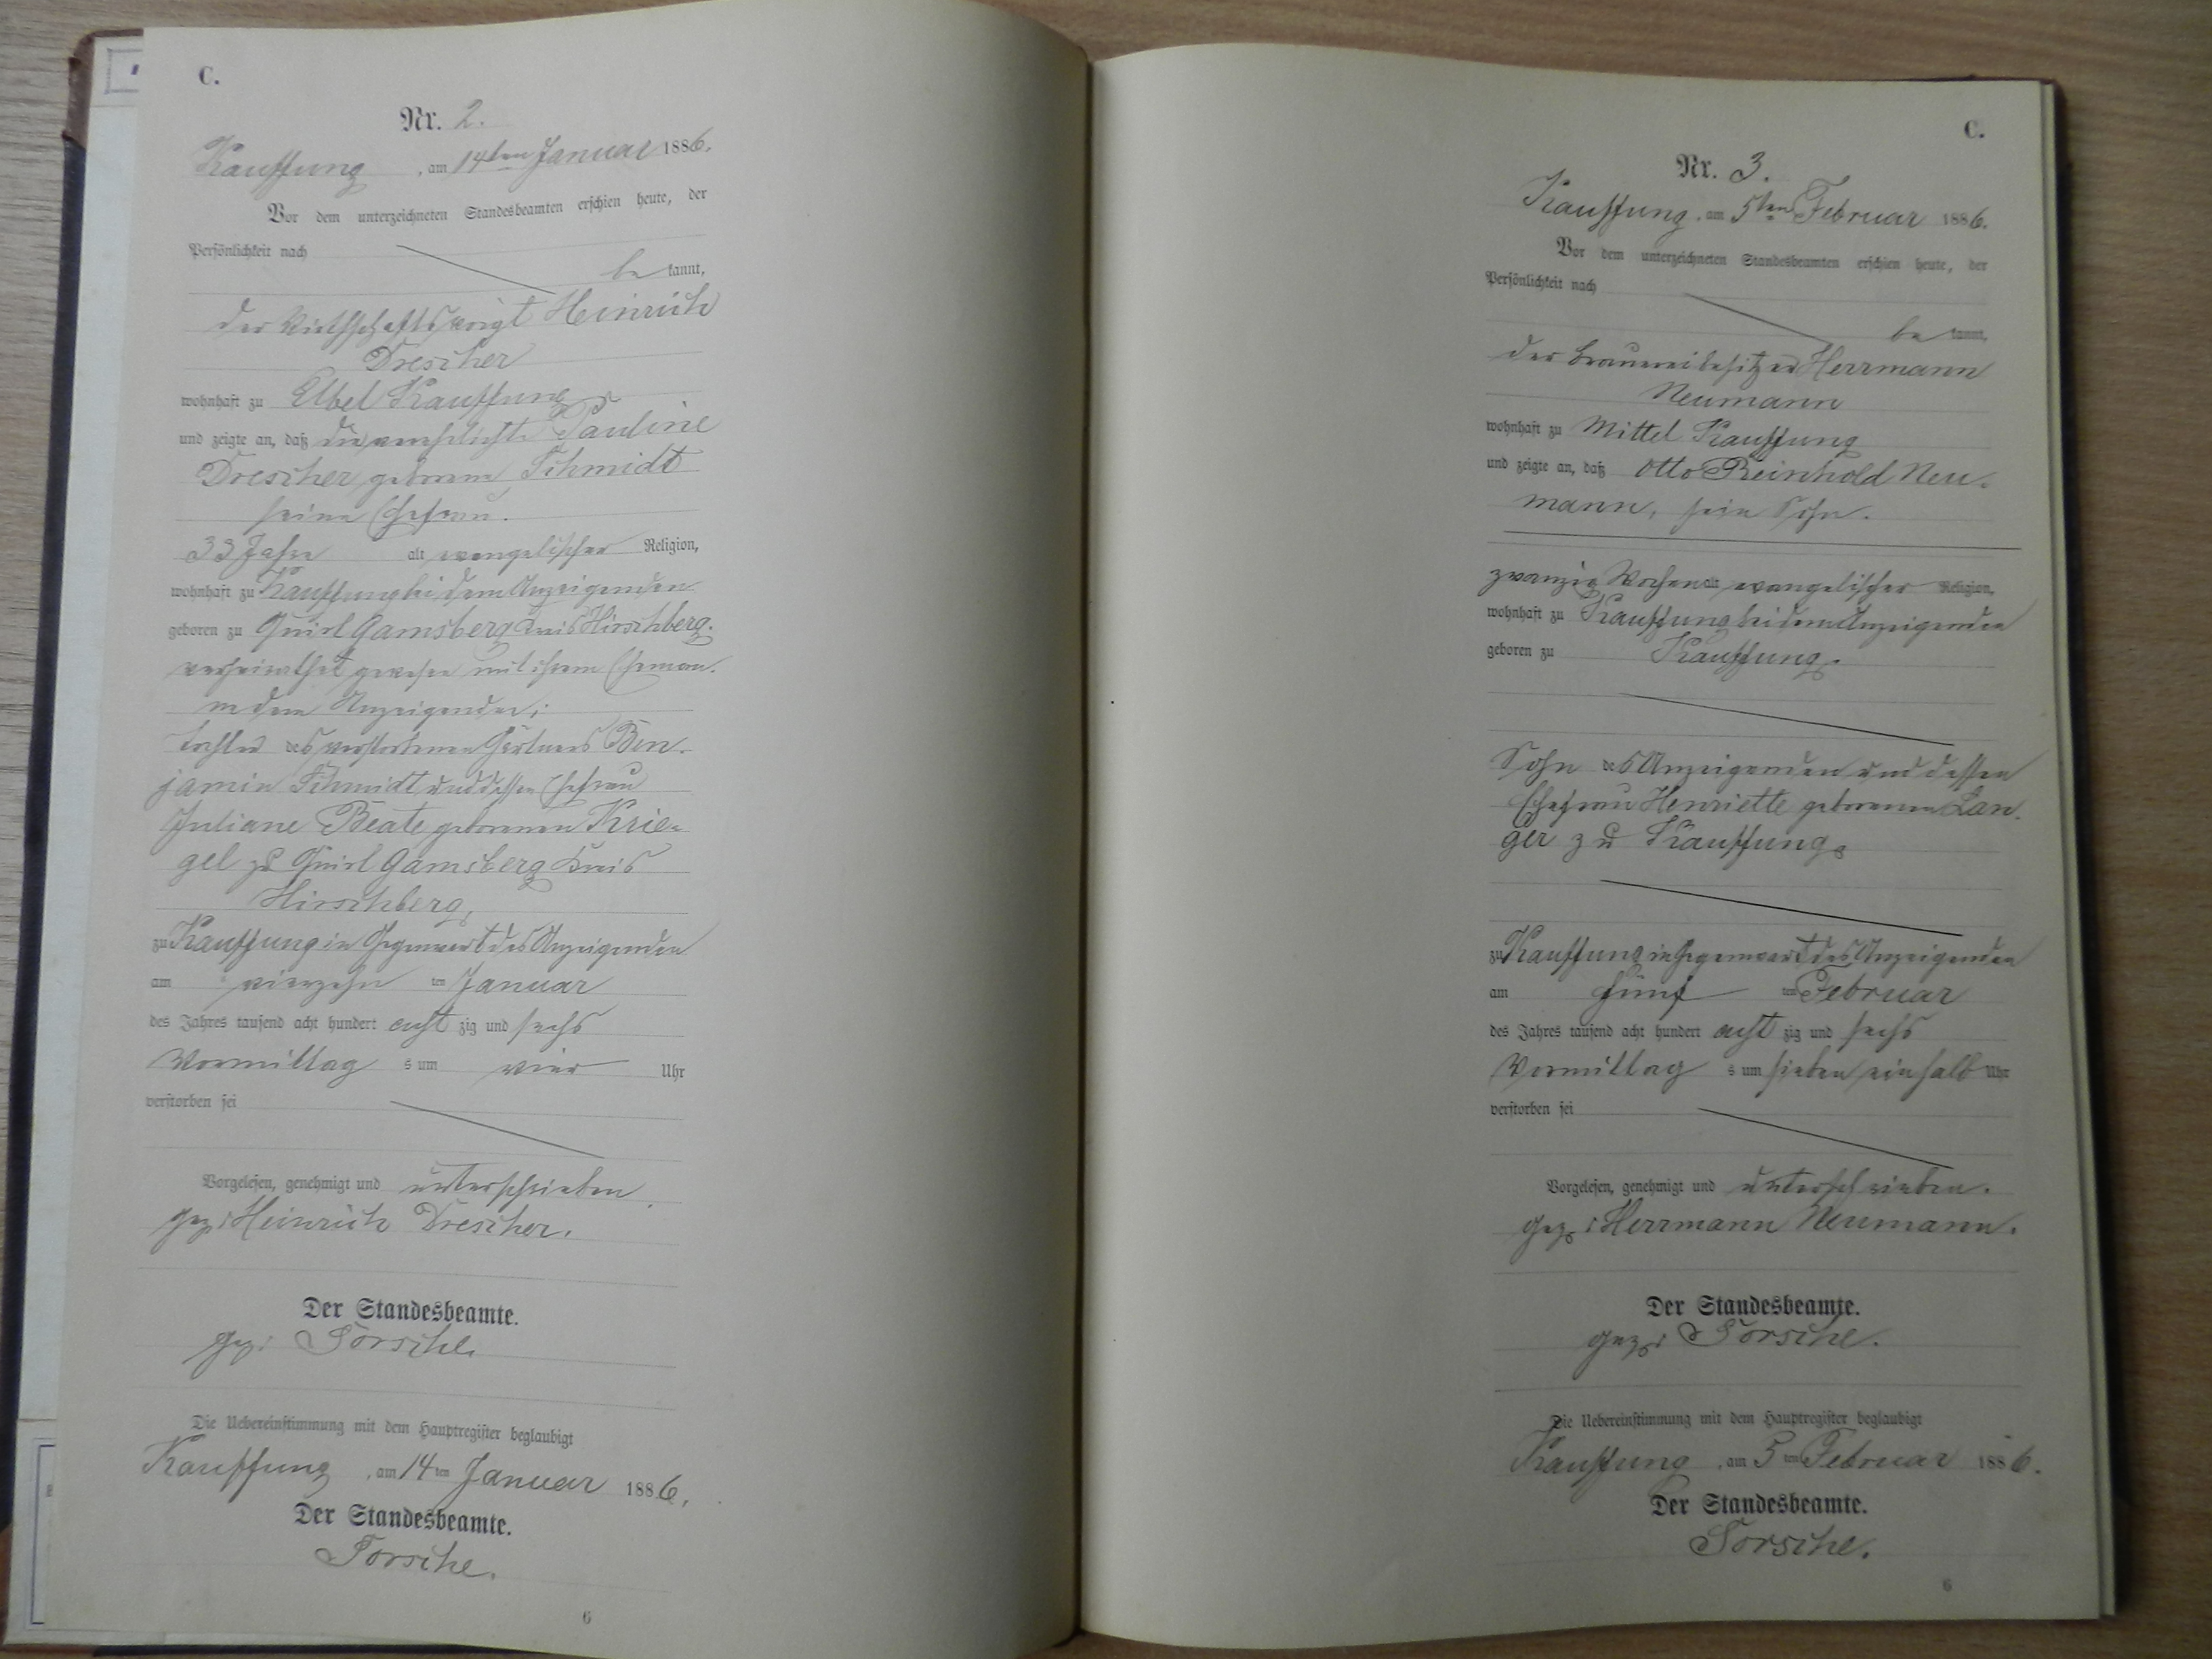 C.
Nr. 2.
Kauffung, am 14ten Januar 1886.
Vor dem unterzeichneten Standesbeamten erschien heute, der
Persönlichkeit nach
be kannt,
der Wirthschaftsvoigt Heinrich
Drescher
wohnhaft zu Elbel Kauffung
und zeigte an, daß die verehelichte Pauline
Drescher, geborene Schmidt
seine Ehefrau.
33 Jahre alt evangelischer Religion,
wohnhaft zu Kauffung bei dem Anzeigenden
geboren zu Quirl Gamsberg Kreis Hirschberg.
verheirathet gewesen mit ihrem Eheman-
ne dem Anzeigenden;
Tochter des verstorbenen Gärtners Ben-
jamin Schmidt und dessen Ehefrau
Juliane Beate geborenen Krie-
gel zu Quirl Gamsberg Kreis
Hirschberg,
zu Kauffung in Gegenwart des Anzeigenden
am vierzehn ten Januar
des Jahres tausend acht hundert acht zig und sechs
Vormittag s um vier Uhr
verstorben sei
Vorgelesen, genehmigt und unterschrieben.
gez: Heinrich Drescher.
Der Standesbeamte.
gez: Torsche.
Die Uebereinstimmung mit dem Hauptregister beglaubigt
Kauffung, am 14 ten Januar 1886.
Der Standesbeamte.
Torsche.
6
C.
Nr. 3.
Kauffung, am 5ten Februar 1886.
Vor dem unterzeichneten Standesbeamten erschien heute, der
Persönlichkeit nach
be kannt,
der Brauereibesitzer Herrmann
Neumann
wohnhaft zu Mittel Kauffung
und zeigte an, daß Otto Reinhold Neu-
mann, sein Sohn.
zwanzig Wochen alt evangelischer Religion,
wohnhaft zu Kauffung bei dem Anzeigenden
geboren zu Kauffung.
Sohn des Anzeigenden und dessen
Ehefrau Henriette geborenen Lan-
ger zu Kauffung.
zu Kauffung in Gegenwart des Anzeigenden
am fünf ten Februar
des Jahres tausend acht hundert acht zig und sechs
Vormittag s um sieben einhalb Uhr
verstorben sei
Vorgelesen, genehmigt und unterschrieben.
gez: Herrmann Neumann.
Der Standesbeamte.
gez: Torsche.
Die Uebereinstimmung mit dem Hauptregister beglaubigt
Kauffung, am 5 ten Februar 1886.
Der Standesbeamte.
Torsche.
6